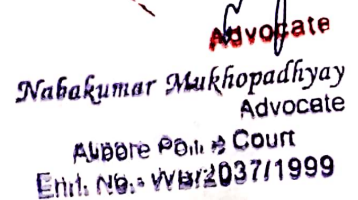 Advocate
Nabakumar Mukhopadhyay
Advocate
Alipore Police Court
Enrl. No.- WB/2037/1999